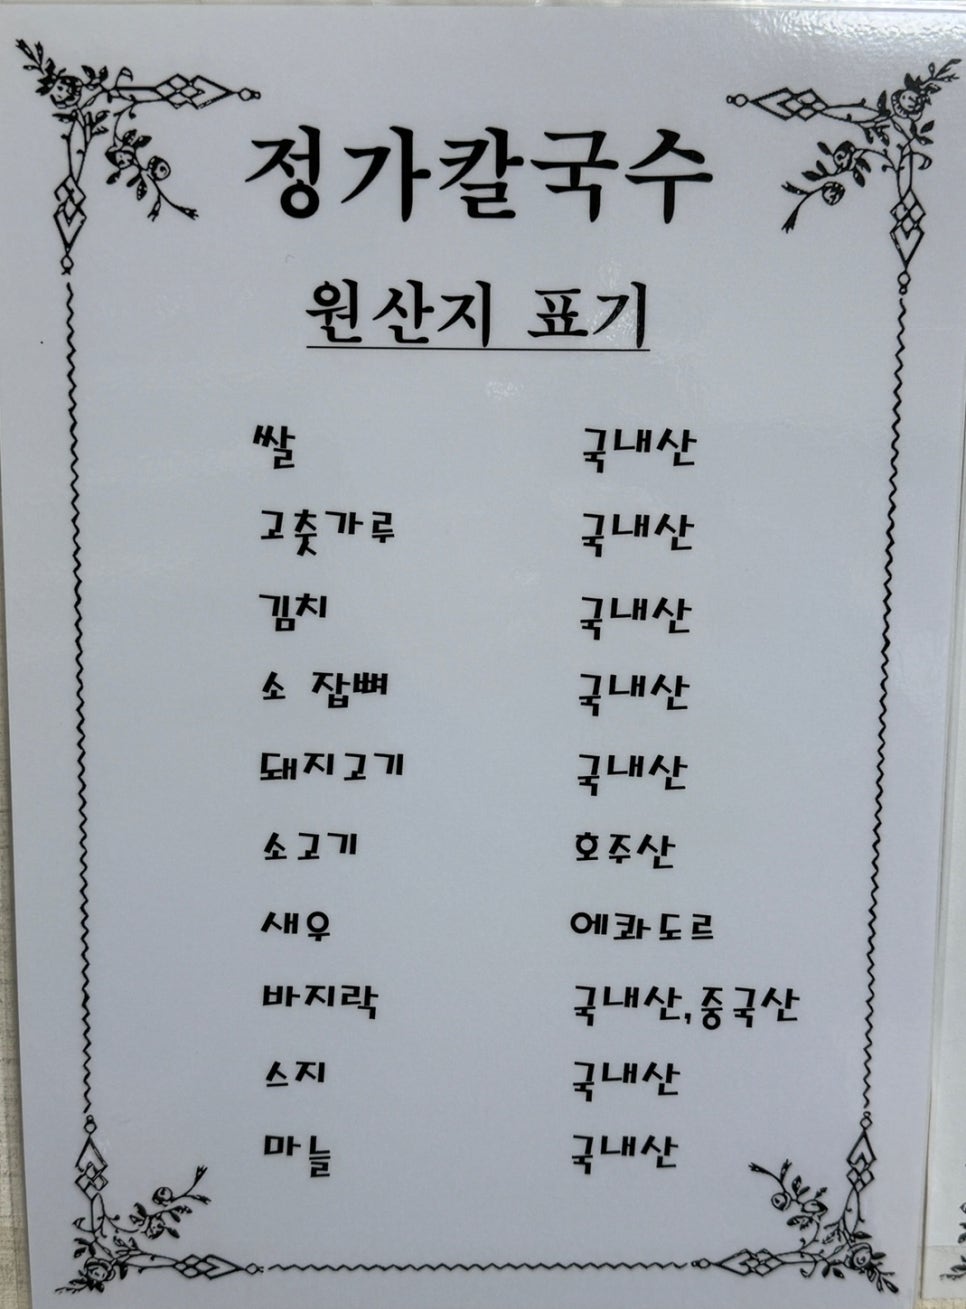 정가칼국수
원산지 표기
쌀 국내산
고춧가루 국내산
김치 국내산
소 잡뼈 국내산
돼지고기 국내산
소고기 호주산
새우 에콰도르
바지락 국내산,중국산
스지 국내산
마늘 국내산